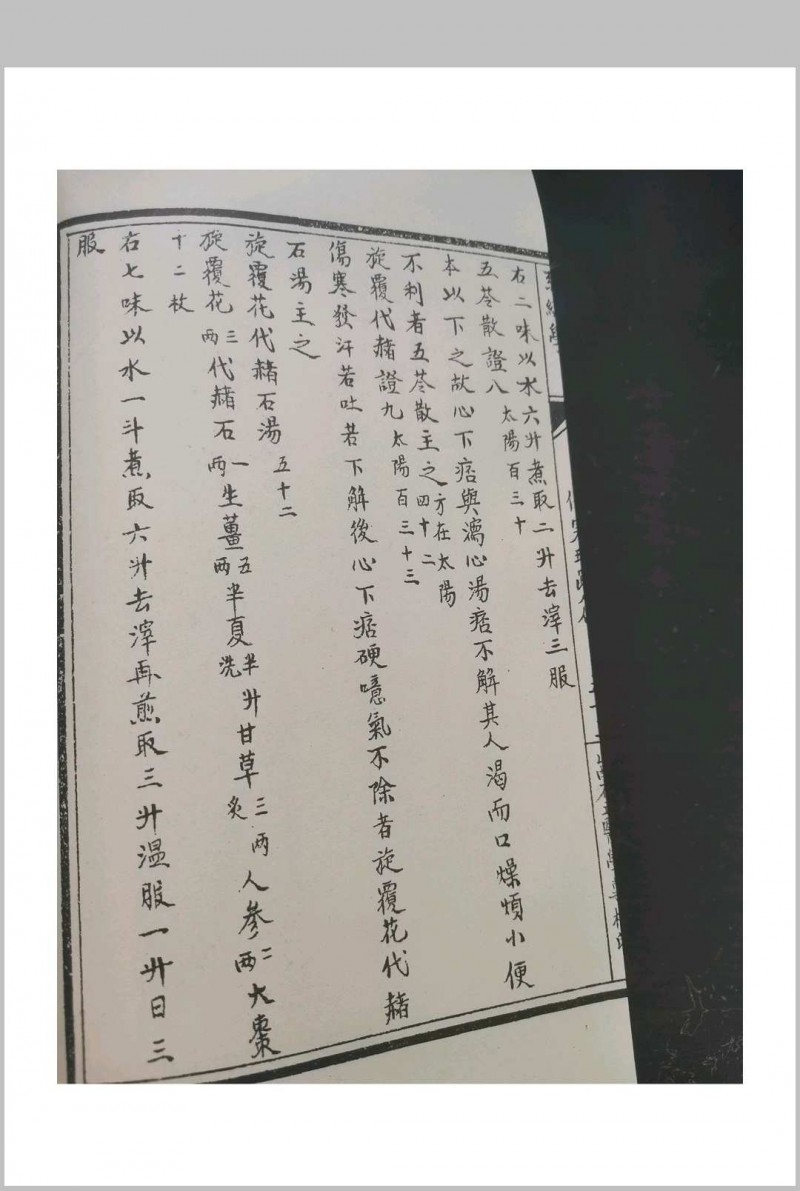 右二味以水六升煮取二升去滓三服
五苓散證八 太陽百三十
本以下之故心下痞與瀉心湯痞不解其人渴而口燥煩小便
不利者五苓散主之 四十二方在太陽
旋覆代赭證九 太陽百三十三
傷寒發汗若吐若下解後心下痞硬噫氣不除者旋覆花代赭
石湯主之
旋覆花代赭石湯 五十二
旋覆花三兩代赭石一兩生薑五兩半夏半升洗甘草三兩炙人參二兩大棗
十二枚
右七味以水一斗煮取六升去滓再煎取三升温服一升日三
服